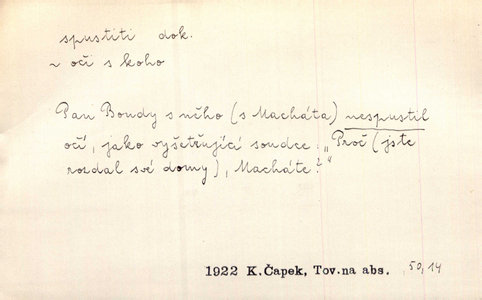 spustiti dok.
~ oči s koho
Pan Bondy s něho (s Macháta) nespustil
očí, jako vyšetřující soudce. „Proč (jste
rozdal své domy), Macháte?"
1922 K.Čapek, Tov.na abs. 50,14